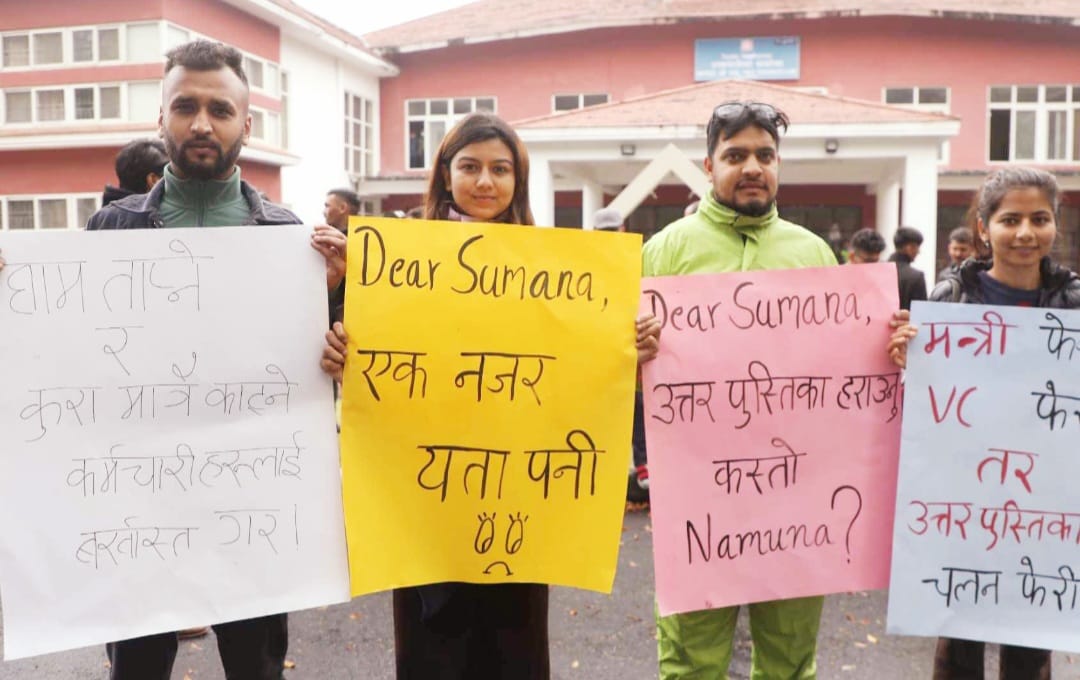 घाम ताप्ने
र
कुरा मात्रै काट्ने
कर्मचारीहरूलाई
बर्खास्त गर।
Dear Sumana,
एक नजर
यता पनी
Dear Sumana,
उत्तर पुस्तिका हराउनु
कस्तो
Namuna?
मन्त्री
VC
तर
उत्तर पुस्तिका
चलन फेरी